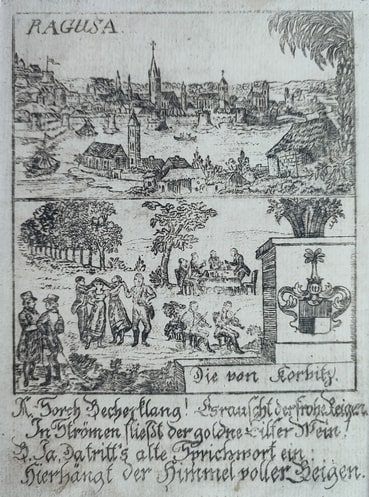 RAGUSA.
Die von Korbitz.
A. Horch Becherklang! Es rauscht der frohe Reigen.
In Strömen fließt der goldne Eilfer Wein.
B. Ja, da tritt's alte Sprichwort ein:
Hier hängt der Himmel voller Geigen.